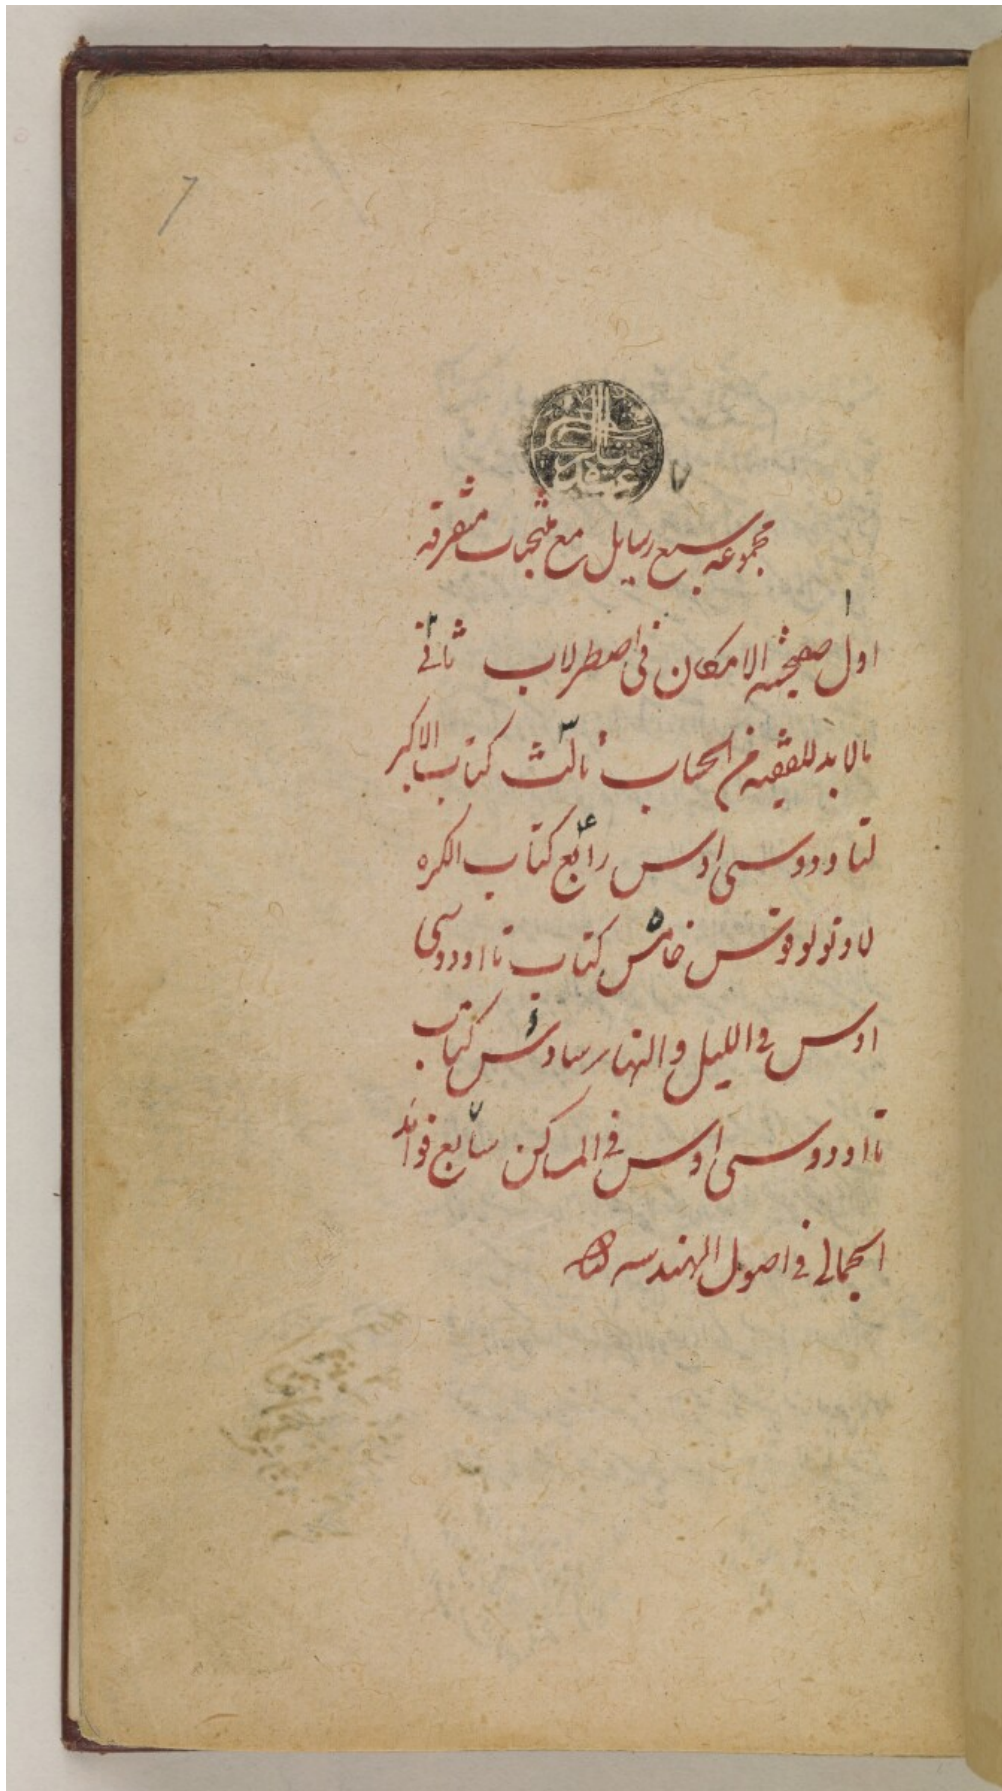 ٧
مجموعه سبع رسایل مع منتخبات متفرقه
١
اول صفیحة الامکان فی اصطرلاب ثانی ٢
ما لا بد للفقیه من الحساب ثالث ٣ کتاب الاکر
لثاودوسی اوس رابع ٤ کتاب الکره
لاوتولوقس خامس ٥ کتاب ثااودوسی
اوس فی اللیل والنهار سادس ٦ کتاب
ثااودوسی اوس فی المساکن سابع ٧ فواید
الجمالی فی اصول الهندسه